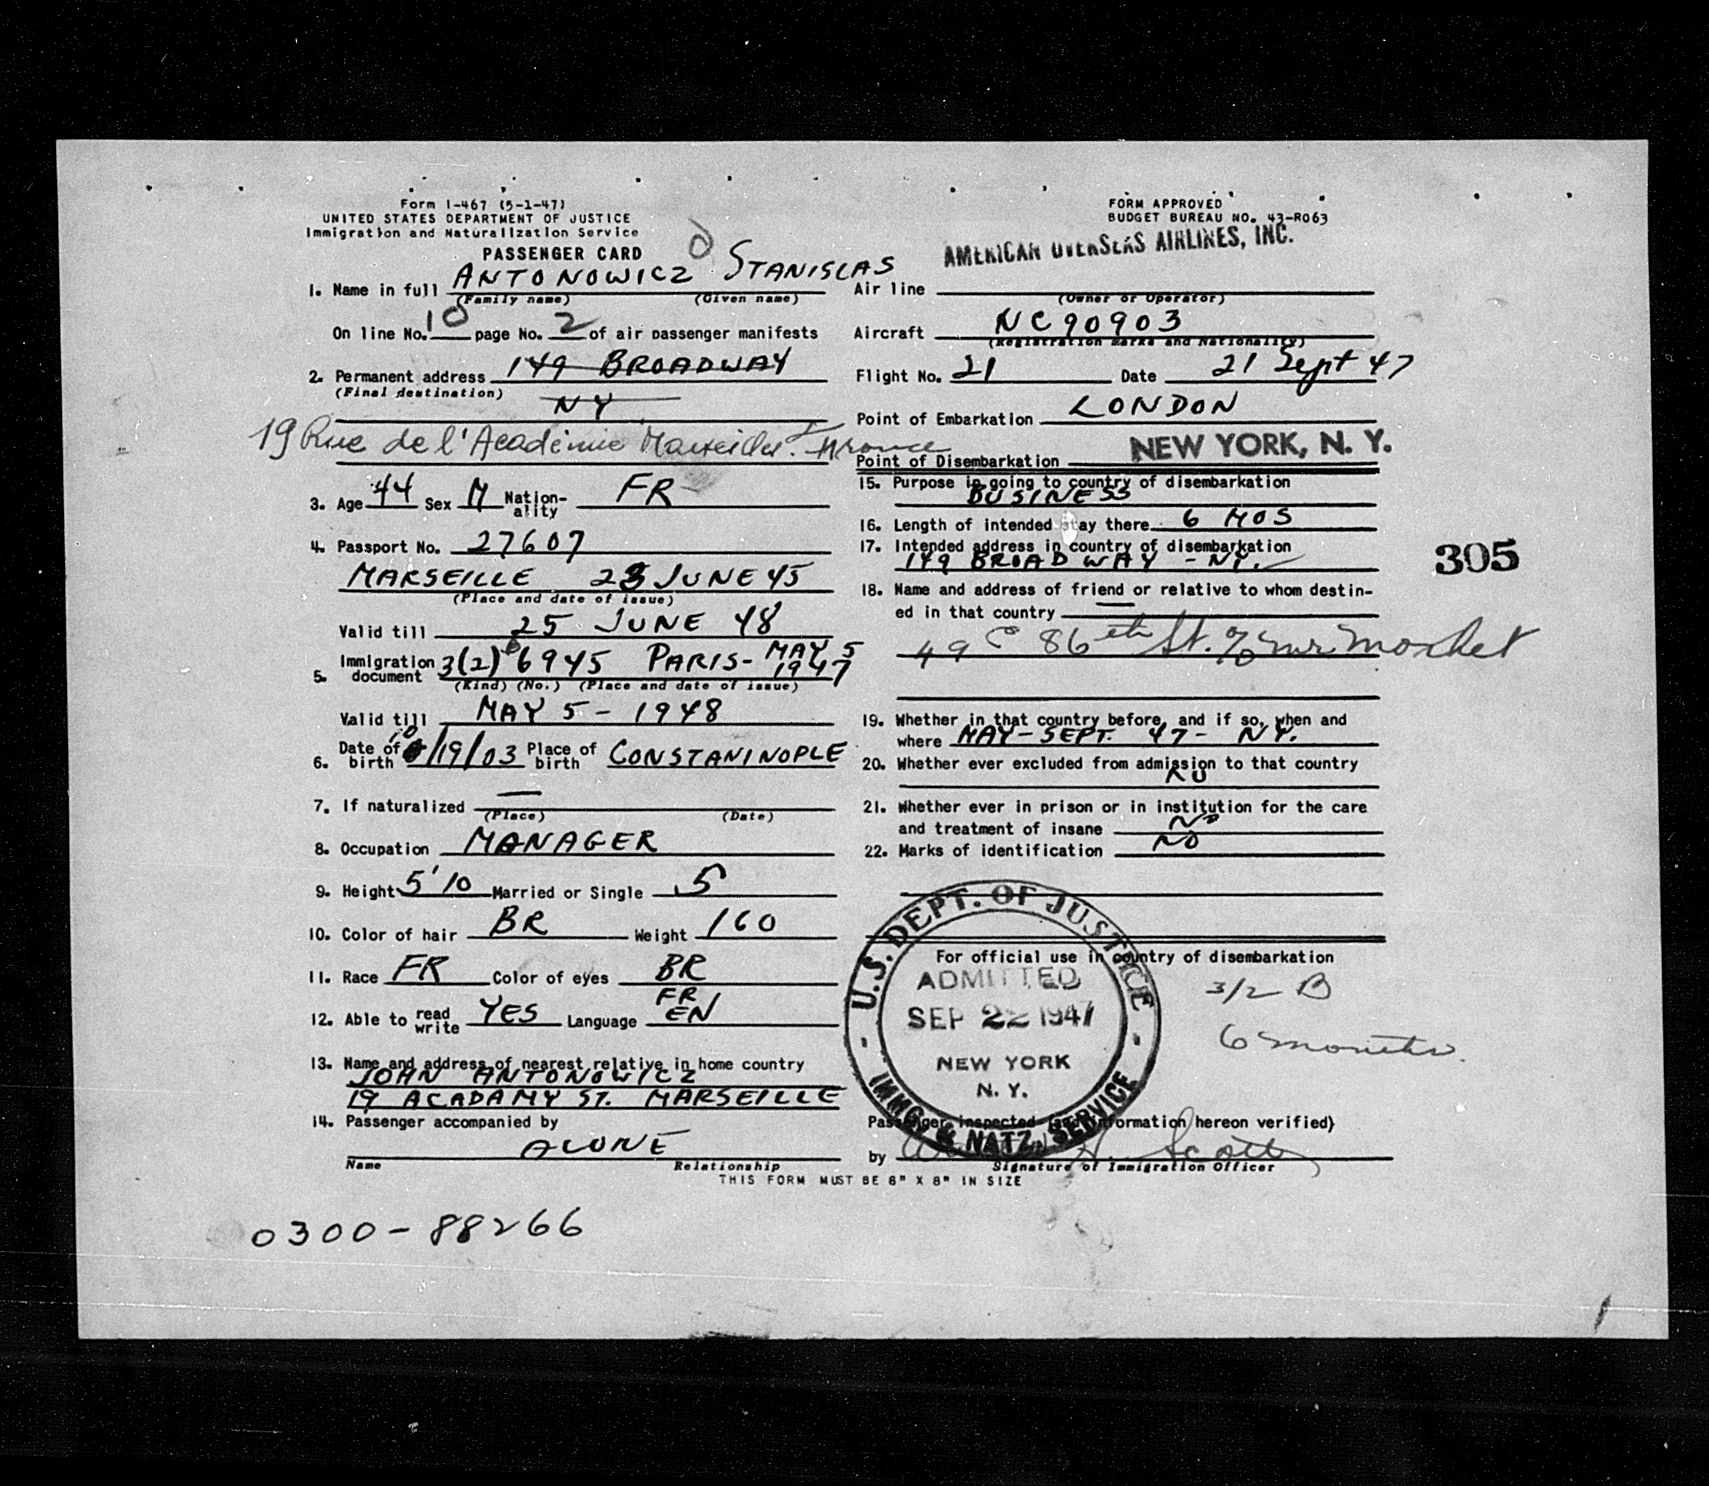 Form I-467 (5-1-47)
UNITED STATES DEPARTMENT OF JUSTICE
Immigration and Naturalization Service
PASSENGER CARD
1. Name in full ANTONOWICZ STANISLAS
(Family name) (Given name)
On line No. 10 page No. 2 of air passenger manifests
2. Permanent address 149 BROADWAY
(Final destination)
NY
19 Rue de l'Académie Marseille. France
3. Age 44 Sex M Nation-ality FR
4. Passport No. 27607
MARSEILLE 25 JUNE 45
(Place and date of issue)
Valid till 25 JUNE 48
5. Immigration document 3(2) 6945 PARIS- MAY 5 1947
(Kind) (No.) (Place and date of issue)
Valid till MAY 5 - 1948
6. Date of birth 10/19/03 Place of birth CONSTANINOPLE
7. If naturalized —
(Place) (Date)
8. Occupation MANAGER
9. Height 5'10 Married or Single S
10. Color of hair BR Weight 160
11. Race FR Color of eyes BR
12. Able to read write YES Language FR EN
13. Name and address of nearest relative in home country
JOHN ANTONOWICZ
19 ACADAMY ST. MARSEILLE
14. Passenger accompanied by
ALONE
Name Relationship
THIS FORM MUST BE 8" X 8" IN SIZE
0300-88266
FORM APPROVED
BUDGET BUREAU NO. 43-R063
AMERICAN OVERSEAS AIRLINES, INC.
Air line
(Owner or Operator)
Aircraft NC90903
(Registration marks and Nationality)
Flight No. 21 Date 21 Sept 47
Point of Embarkation LONDON
Point of Disembarkation NEW YORK, N. Y.
15. Purpose in going to country of disembarkation
BUSINESS
16. Length of intended stay there 6 MOS
17. Intended address in country of disembarkation
149 BROADWAY - NY.
305
18. Name and address of friend or relative to whom destin-
ed in that country —
49 E 86th St. % mr
19. Whether in that country before, and if so, when and
where MAY-SEPT. 47- NY.
20. Whether ever excluded from admission to that country
NO
21. Whether ever in prison or in institution for the care
and treatment of insane NO
22. Marks of identification NO
For official use in country of disembarkation
3/2 B
6 months.
U.S. DEPT. OF JUSTICE
ADMITTED
SEP 22 1947
NEW YORK
N. Y.
IMMG. & NATZ. SERVICE
Passenger inspected (and information hereon verified)
by H. Scott
Signature of Immigration Officer